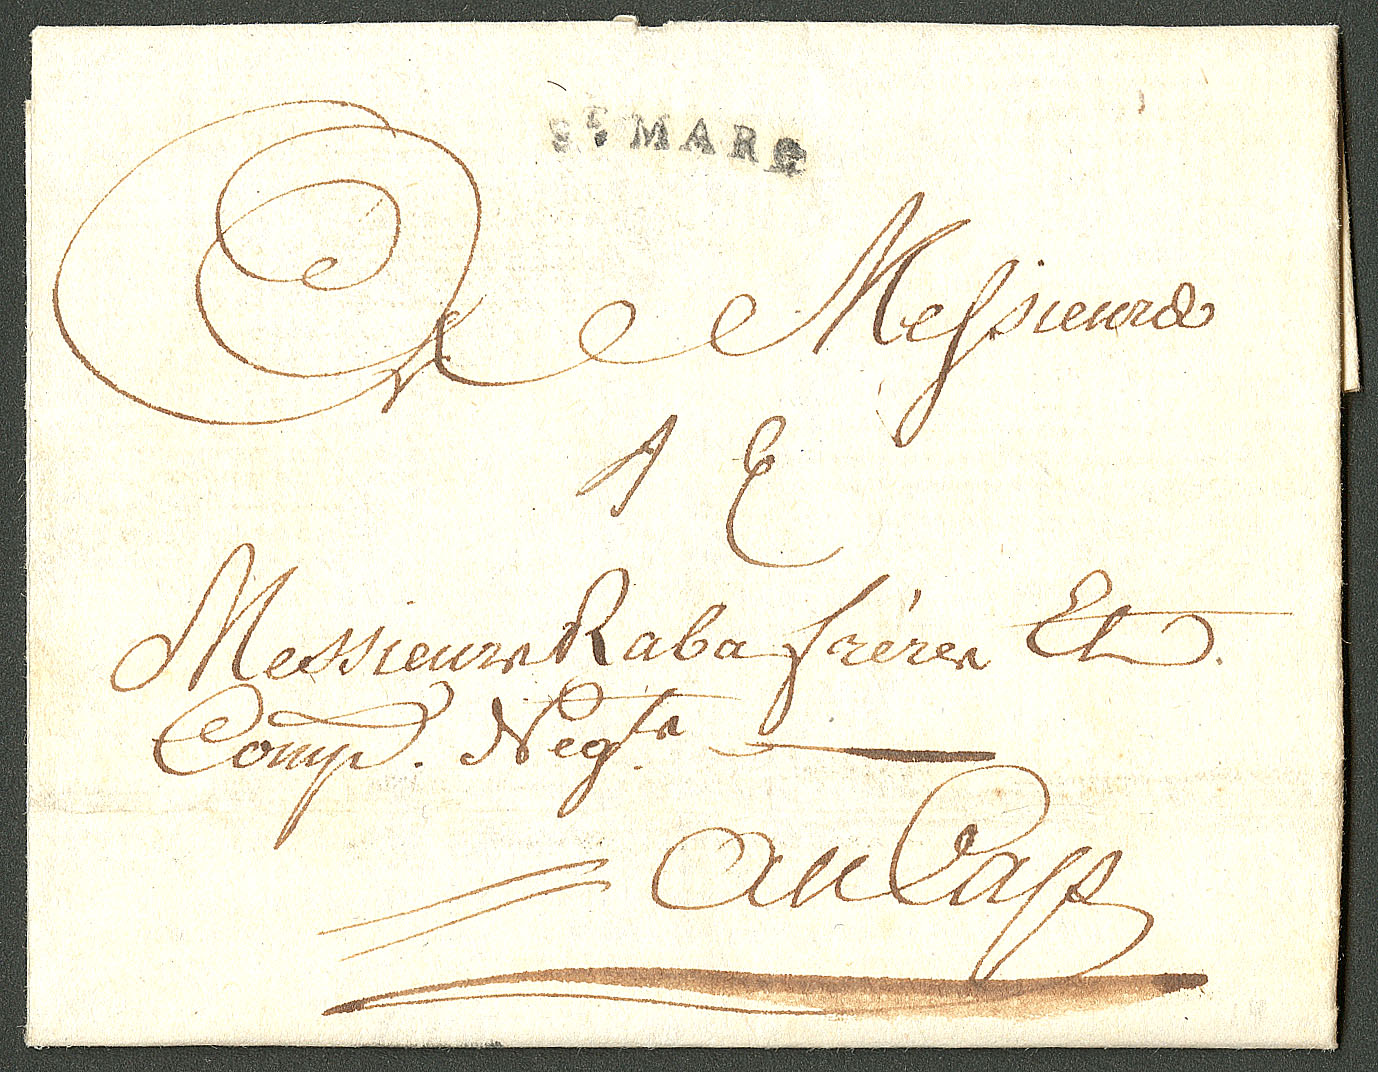 ST MARC
A Messieurs
A E
Messieurs Raba frères Et
Comp. Negts
Au Cap